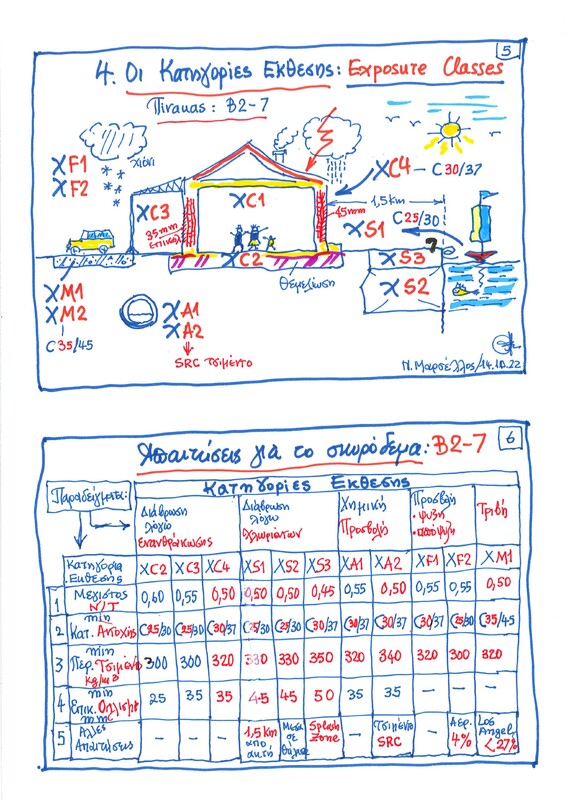 5
4. Οι Κατηγορίες Εκθεσης: Exposure Classes
Πίνακας: B2-7
XF1
XF2
χιόνι
XC4 - C30/37
1,5km
XC3
XC1
35mm
επικαλ
45mm
C25/30
XS1
XC2
XS3
XS2
Θεμελίωση
XM1
XM2
C35/45
XA1
XA2
SRC τσιμέντο
Ν. Μαρσέλλος/14.10.22
6
Απαιτήσεις για το σκυρόδεμα: B2-7
Παραδείγματα:
Κατηγορίες Εκθεσης
Διάβρωση λόγω Ενανθράκωσης
Διάβρωση λόγω Χλωριόντων
Χημική Προσβολή
Προσβολή • ψύξη • απόψυξη
Τριβή
Κατηγορία Εκθεσης XC2 XC3 XC4 XS1 XS2 XS3 XA1 XA2 XF1 XF2 XM1
1 Μέγιστος Ν/Τ 0,60 0,55 0,50 0,50 0,50 0,45 0,55 0,50 0,55 0,55 0,50
2 min Κατ. Αντοχής C25/30 C25/30 C30/37 C25/30 C25/30 C30/37 C30/37 C30/37 C30/37 C25/30 C35/45
3 min Περ. Τσιμέντο kg/m3 300 300 320 330 330 350 320 340 320 300 320
4 min Επικ. Οπλισμ mm 25 35 35 45 45 50 35 35 - - -
5 Αλλες Απαιτήσεις - - - 1,5km από ακτή Μέσα σε θάλασ Splash Zone - Τσιμέντο SRC - Αερ. 4% Los Angel. <27%